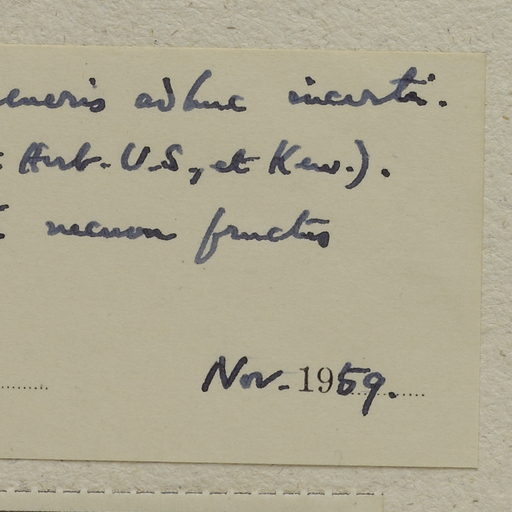 eneris adhuc incerti.
Herb. U.S., et Kew.).
necnon fructus
Nov. 1959.